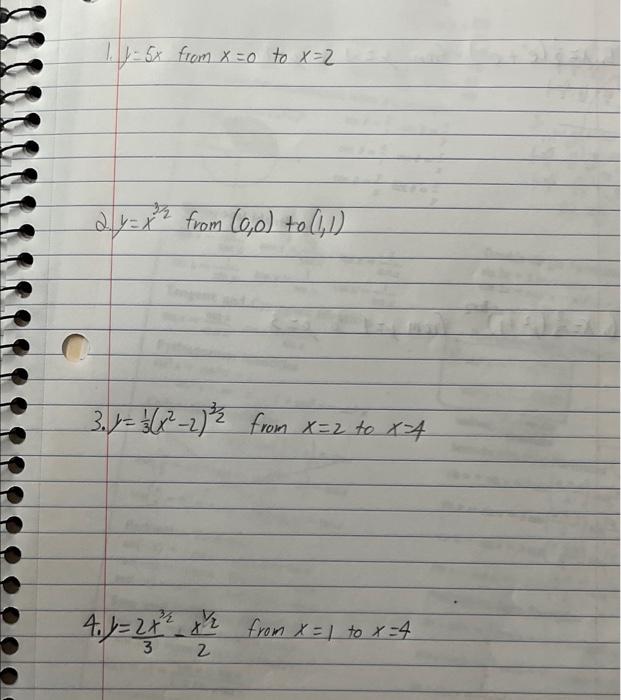 1. y=5x from x=0 to x=2
2. y=x^{3/2} from (0,0) to (1,1)
3. y=\frac{1}{3}(x^2-2)^{3/2} from x=2 to x=4
4. y=\frac{2x^{3/2}}{3}-\frac{x^{1/2}}{2} from x=1 to x=4